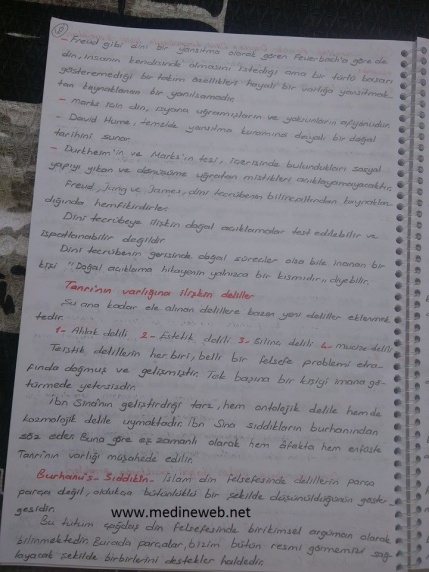 6
- Freud gibi dini bir yansıtma olarak gören Feuerbach'a göre de
din, insanın kendisinde olmasını istediği ama bir türlü başarı
gösteremediği bir takım özellikleri hayali bir varlığa yansıtmak-
tan kaynaklanan bir yanılsamadır.
- Marks için din, isyana uğramışların ve yoksunların afyonudur.
- David Hume, temelde yansıtma kuramına dayalı bir doğal
tarihini sunar.
- Durkheim'in ve Marks'ın tezi, içerisinde bulundukları sosyal
yapıyı yıkan ve dönüşüme uğratan mistikleri açıklayamayacaktır.
Freud, Jung ve James, dini tecrübenin bilinçaltından kaynaklan-
dığında hemfikirdirler.
Dini tecrübeye ilişkin doğal açıklamalar test edilebilir ve
ispatlanabilir değildir.
Dini tecrübenin gerisinde doğal süreçler olsa bile inanan bir
kişi "Doğal açıklama hikayenin yalnızca bir kısmıdır" diyebilir.
Tanrı'nın varlığına ilişkin deliller
Şu ana kadar ele alınan delillere bazen yeni deliller eklenmek-
tedir.
1- Ahlak delili 2- Estetik delili 3- Bilinç delili 4- mucize delili
Teistik delillerin her biri, belli bir felsefe problemi etra-
fında doğmuş ve gelişmiştir. Tek başına bir kişiyi imana ge-
türmede yetersizdir.
İbn Sina'nın geliştirdiği tarz, hem ontolojik delile hem de
kozmolojik delile uymaktadır. İbn Sina sıddıkların burhanından
söz eder. Buna göre eş zamanlı olarak hem âfakta hem enfüste
Tanrı'nın varlığı müşahede edilir.
Burhanu's-Sıddıkîn- İslam din felsefesinde delillerin parça
parça değil, oldukça bütünlüklü bir şekilde düşünüldüğünün göster-
gesidir.
Bu tutum çağdaş din felsefesinde birikimsel argüman olarak
bilinmektedir. Burada parçalar, bizim bütün resmi görmemizi sağ-
layacak şekilde birbirlerini destekler haldedir.
www.medineweb.net